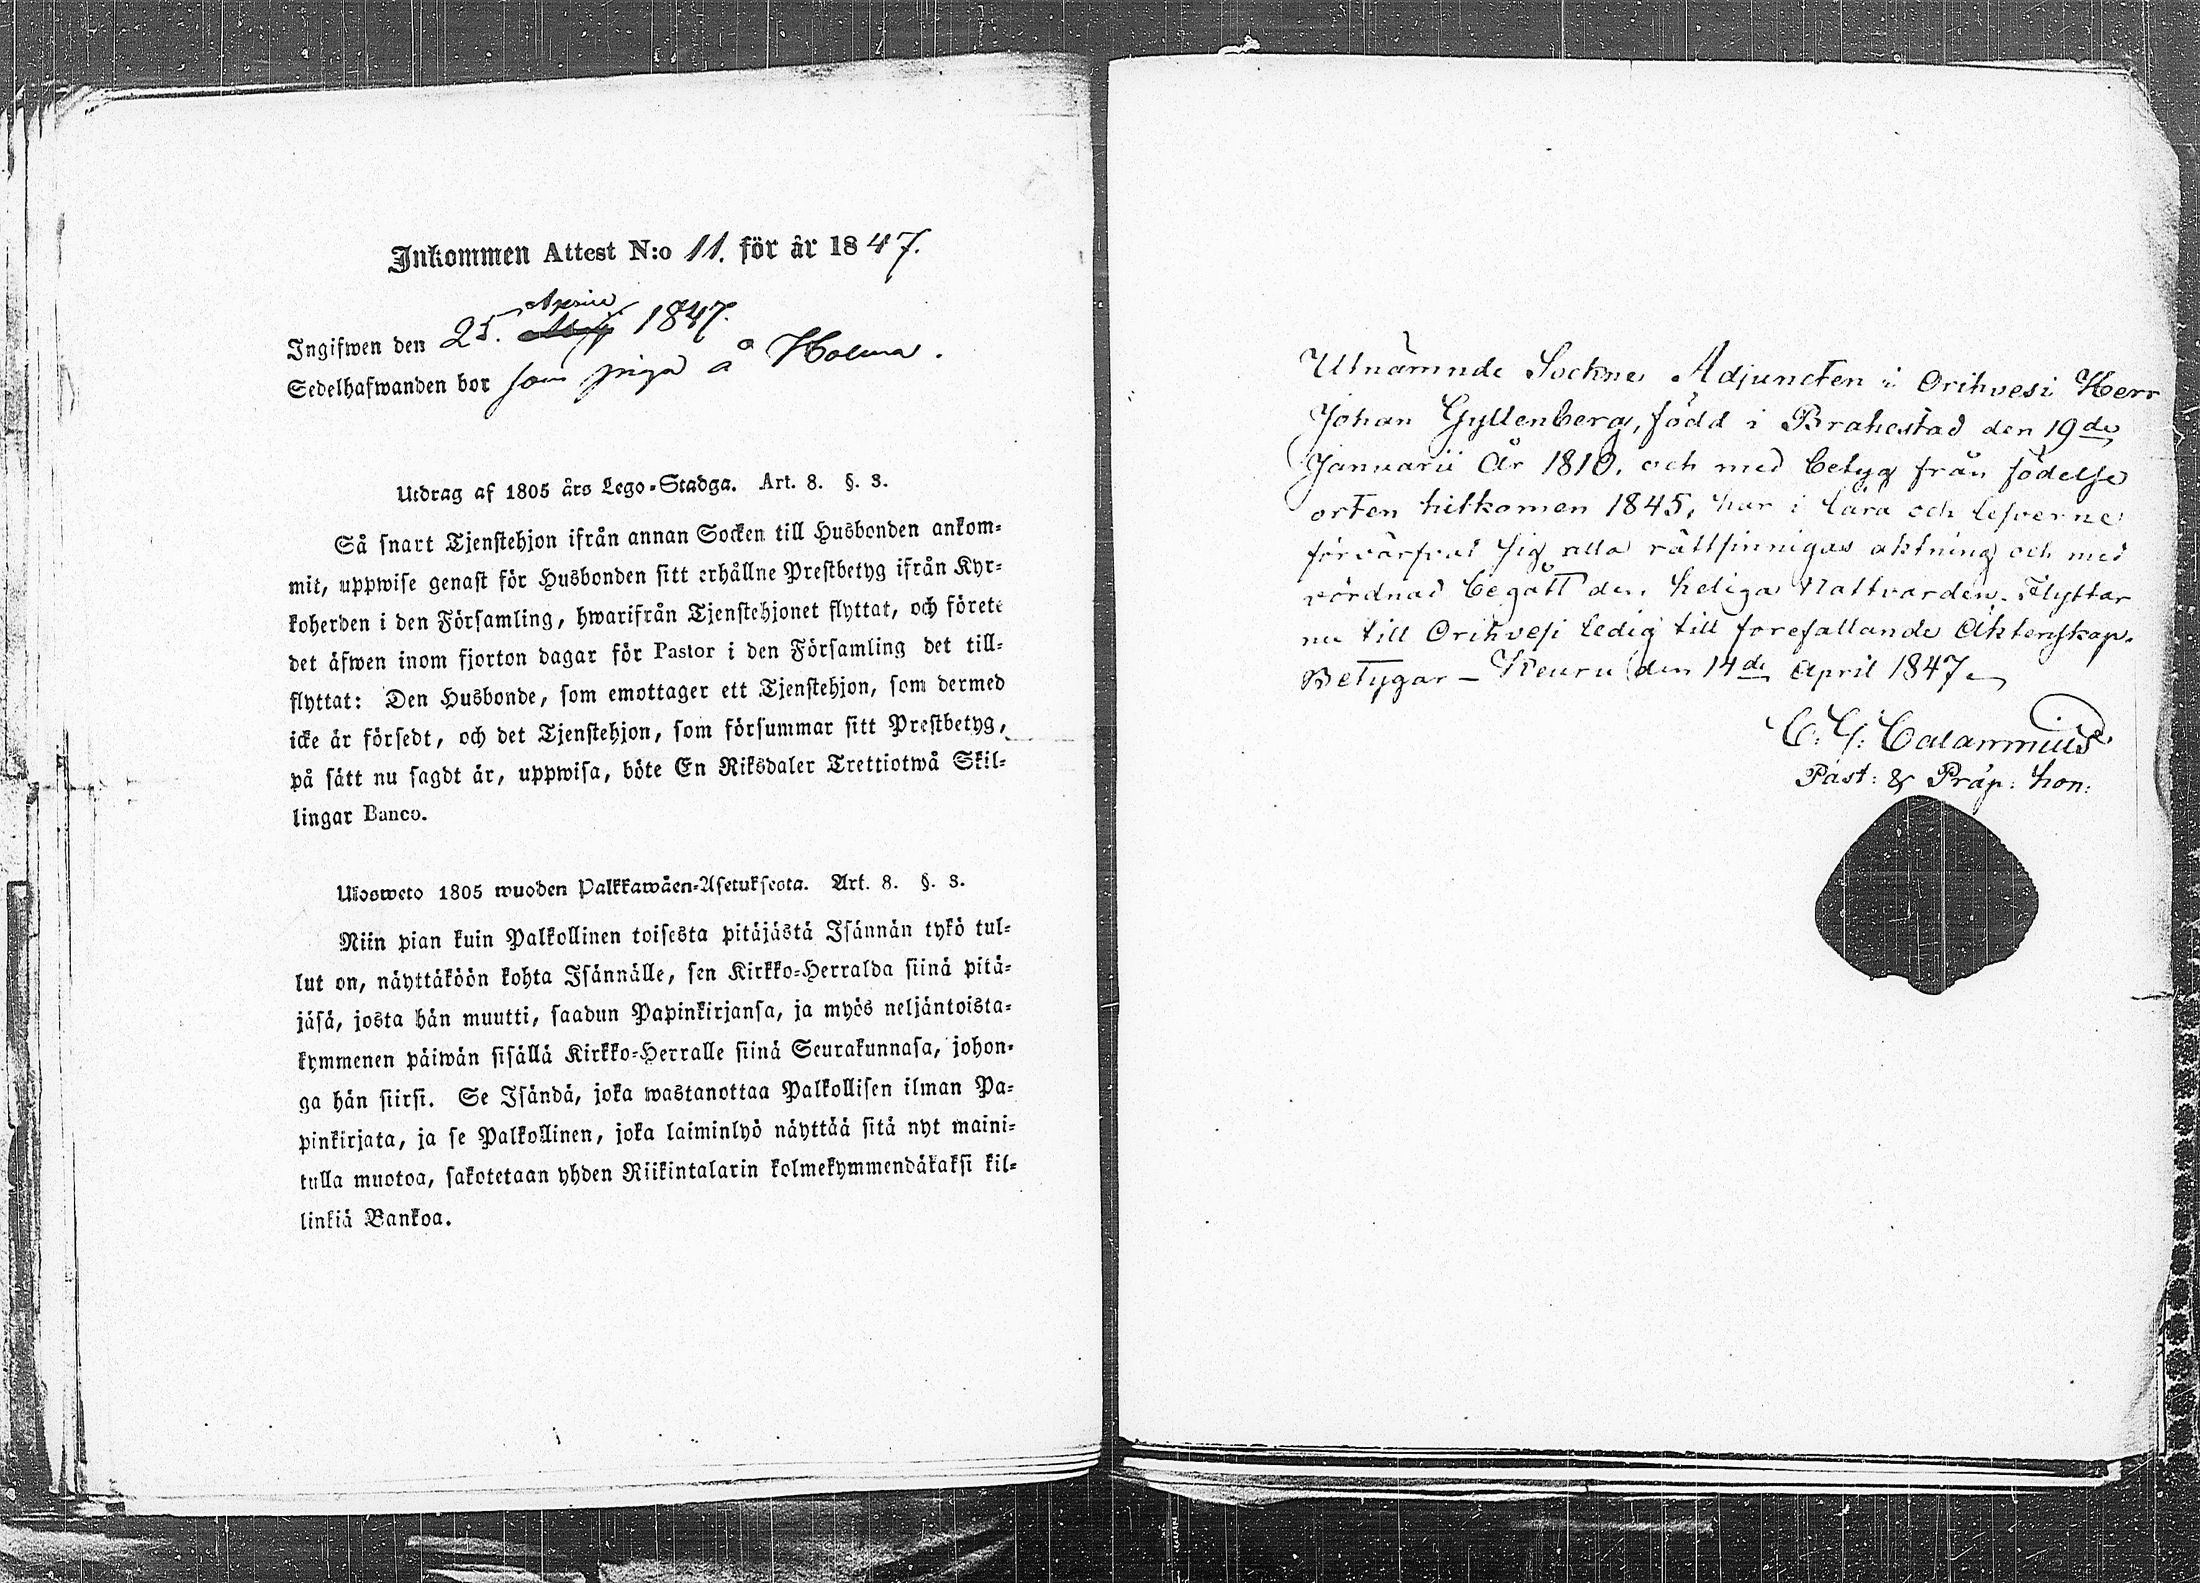 Inkommen Attest N:o 11. för år 1847.
April
Ingifwen den 25. 1847.
Sedelhafwanden bor som piga å Holma.
Utdrag af 1805 års Lego-Stadga. Art. 8. §. 3.
Så snart Tjenstehjon ifrån annan Socken till Husbonden ankom-
mit, uppwise genast för Husbonden sitt erhållne Prestbetyg ifrån Kyr-
koherden i den Församling, hwarifrån Tjenstehjonet flyttat, och förete
det äfwen inom fjorton dagar för Pastor i den Församling det till-
flyttat: Den Husbonde, som emottager ett Tjenstehjon, som dermed
icke är försedt, och det Tjenstehjon, som försummar sitt Prestbetyg,
på sätt nu sagdt är, uppwisa, böte En Riksdaler Trettiotwå Skil-
lingar Banco.
Ulosweto 1805 wuoden Palkkawäen-Asetuksesta. Art. 8. §. 3.
Niin pian kuin Palkollinen toisesta pitäjästä Isännän tykö tul-
lut on, näyttäköön kohta Isännälle, sen Kirkko-Herralda siinä pitä-
jäsä, josta hän muutti, saadun Papinkirjansa, ja myös neljäntoista-
kymmenen päiwän sisällä Kirkko-Herralle siinä Seurakunnasa, johon-
ga hän siirsi. Se Isändä, joka wastanottaa Palkollisen ilman Pa-
pinkirjata, ja se Palkollinen, joka laiminlyö näyttää sitä nyt maini-
tulla muotoa, sakotetaan yhden Riikintalarin kolmekymmendäkaksi kil-
linkiä Bankoa.
Utnämnde Sockne Adjuncten i Orihvesi Herr
Johan Gyllenberg, född i Brahestad den 19de
Januarii År 1810, och med betyg från födelse
orten hitkomen 1845, har i lära och lefverne
förvärfvat sig alla rättsinnigas aktning och med
vördnad begått den heliga Nattvarden. Flyttar
nu till Orihvesi ledig till förefallande Äktenskap.
Betygar – Keuru den 14de April 1847
C. G. Calamnius
Past: & Präp: hon: